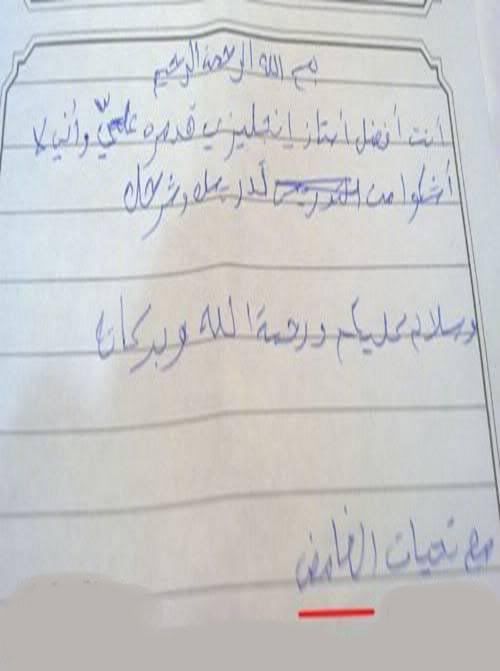 بسم الله الرحمن الرحيم
أنت أفضل أستاذ إنجليزي قد مره عليّ وأني لا
أشكوا من التدريس لدريسك وشرحك
وسلام عليكم ورحمة الله وبركاته
مع تحيات الغامض